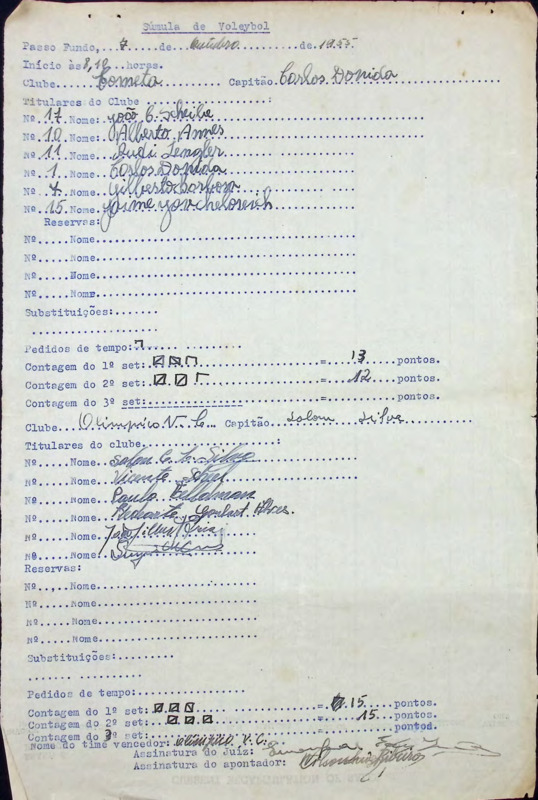 Súmula de Voleybol
Passo Fundo, 7 de Outubro de 1955
Início às 8,10 horas.
Clube Cometa Capitão Carlos Donida
Titulares do Clube :
Nº 17 Nome: João C. Scheibe
Nº 10 Nome: Alberto Annes
Nº 11 Nome: Rudi Lengler
Nº 1 Nome: Carlos Donida
Nº 4 Nome: Gilberto Barbosa
Nº 15 Nome: Jaime
Reservas:
Nº Nome
Nº Nome
Nº Nome
Nº Nome
Substituições:
Pedidos de tempo:
Contagem do 1º set: = 13 pontos.
Contagem do 2º set: = 12 pontos.
Contagem do 3º set: = pontos.
Clube Olimpico V. C. Capitão Solon Silva
Titulares do clube :
Nº Nome Solon Silva
Nº Nome Vicente
Nº Nome Paulo
Nº Nome Goulart Alves
Nº Nome. João
Nº Nome.
Reservas:
Nº Nome
Nº Nome
Nº Nome
Nº Nome
Substituições:
Pedidos de tempo:
Contagem do 1º set: = 15 pontos.
Contagem do 2º set: = 15 pontos.
Contagem do 3º set: = pontos.
Nome do time vencedor: Olimpico V.C.
Assinatura do Juiz:
Assinatura do apontador: Ribeiro